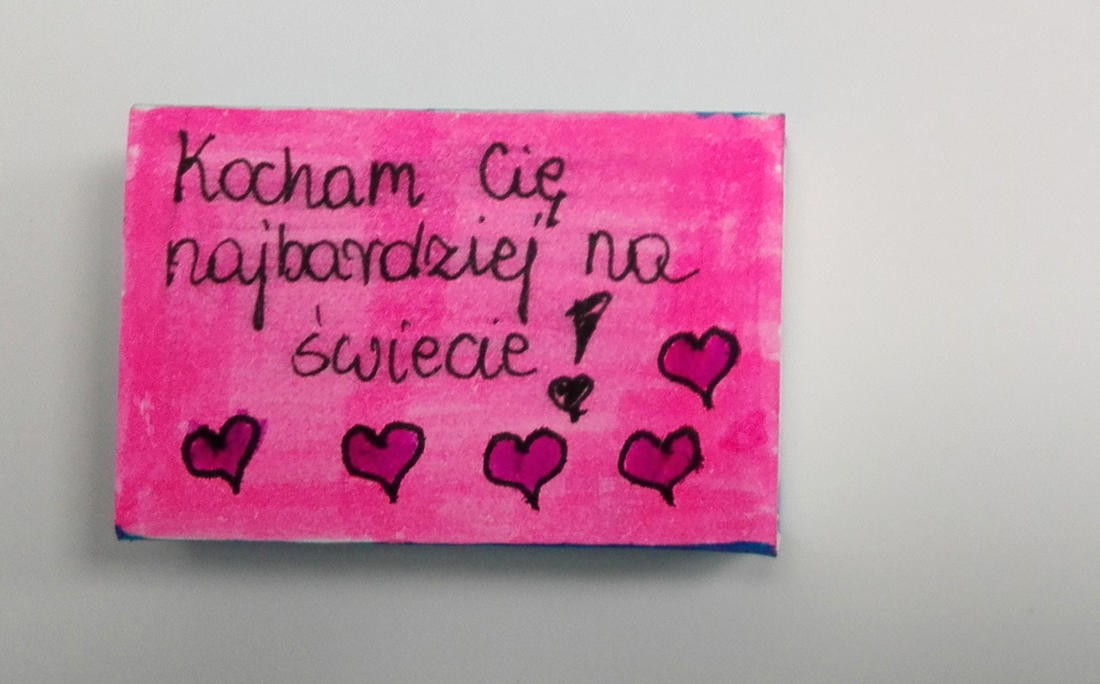 Kocham Cię
najbardziej na
świecie!